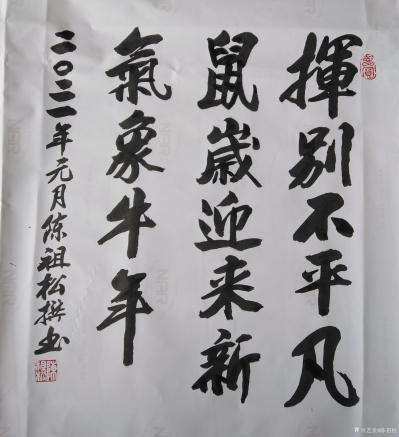 揮别不平凡
鼠歲迎来新
氣象牛年
二〇二一年元月陈祖松撰书